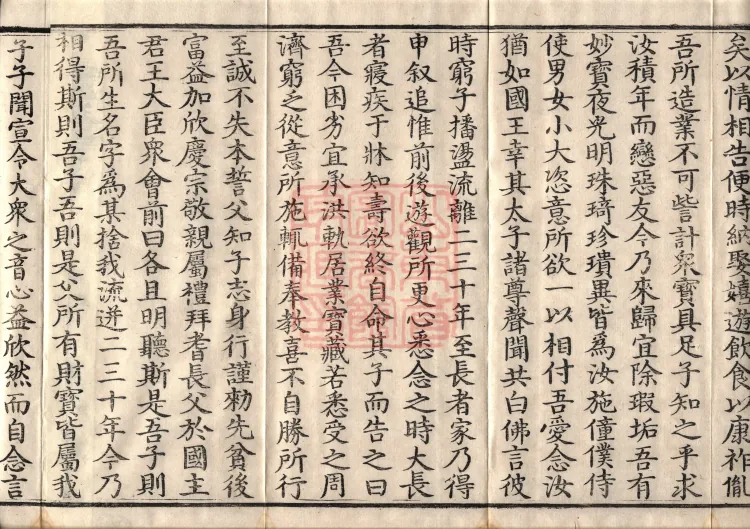 矣以情相告便時納娶嬉遊飲食以康祚胤
吾所造業不可訾計眾寶具足子知之乎求
汝積年而戀惡友今乃來歸宜除瑕垢吾有
妙寶夜光明珠琦珍璝異皆為汝施僮僕侍
使男女小大恣意所欲一以相付吾愛念汝
猶如國王幸其太子諸尊聲聞共白佛言彼
時窮子播盪流離二三十年至長者家乃得
申叙追惟前後遊觀所更心悉念之時大長
者寢疾于牀知壽欲終自命其子而告之曰
吾今困劣宜承洪軌居業寶藏若悉受之周
濟窮乏從意所施輒備奉教喜不自勝所行
至誠不失本誓父知子志身行謹勑先貧後
富益加欣慶宗敬親屬禮拜耆長父於國主
君王大臣眾會前曰各且明聽斯是吾子則
吾所生名字為某捨我流迸二三十年今乃
相得斯則吾子吾則是父所有財寶皆屬我
子子聞宣令大眾之音心益欣然而自念言